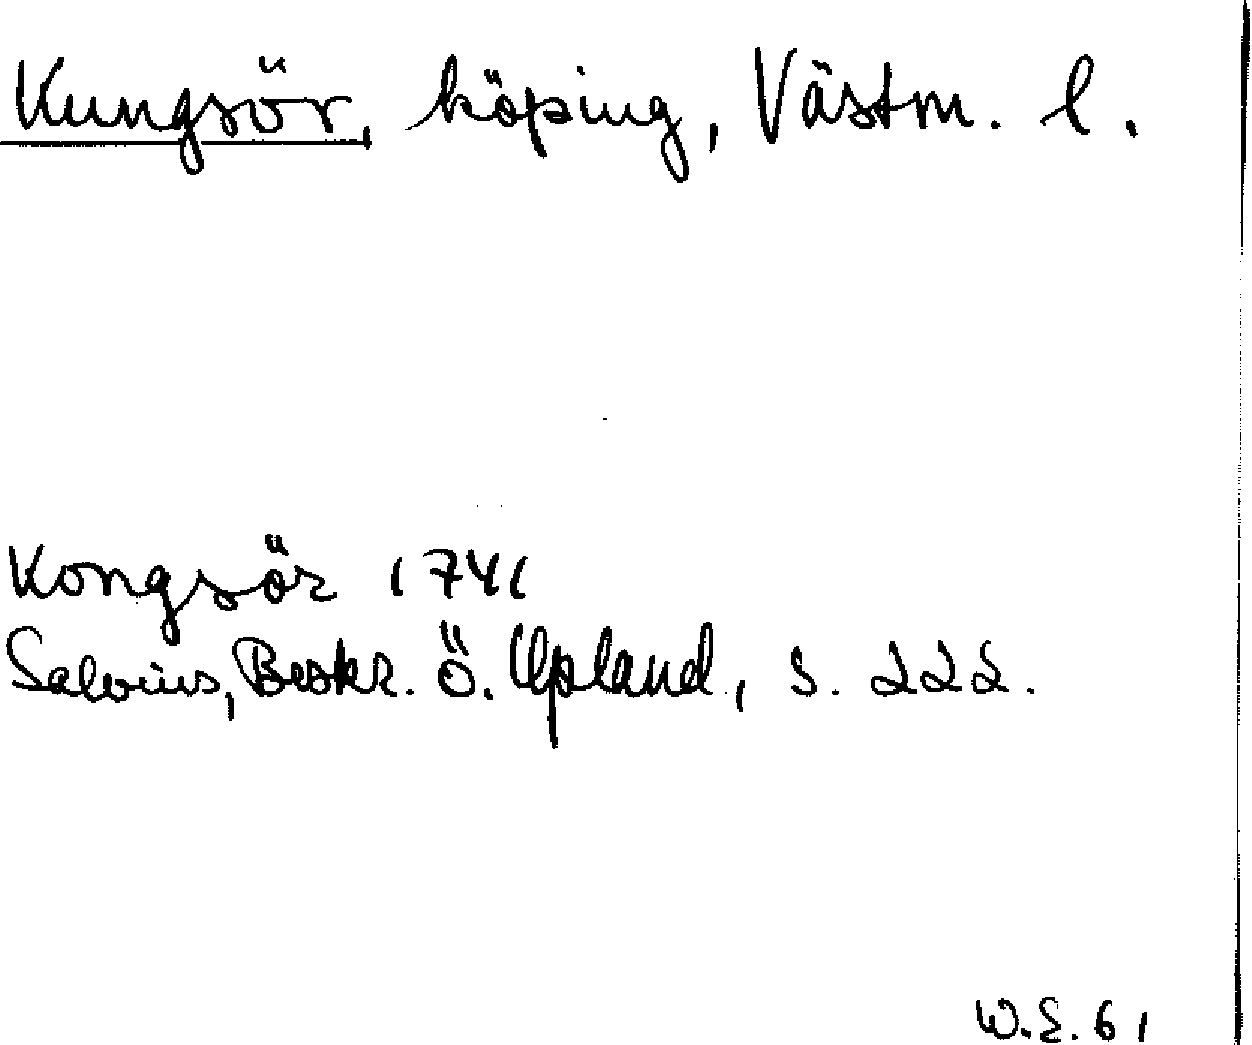 Kungsör, köping, Västm. l.
Kongsör 1741
Salvius, Beskr. Ö. Upland, s. 222.
W.E. 61